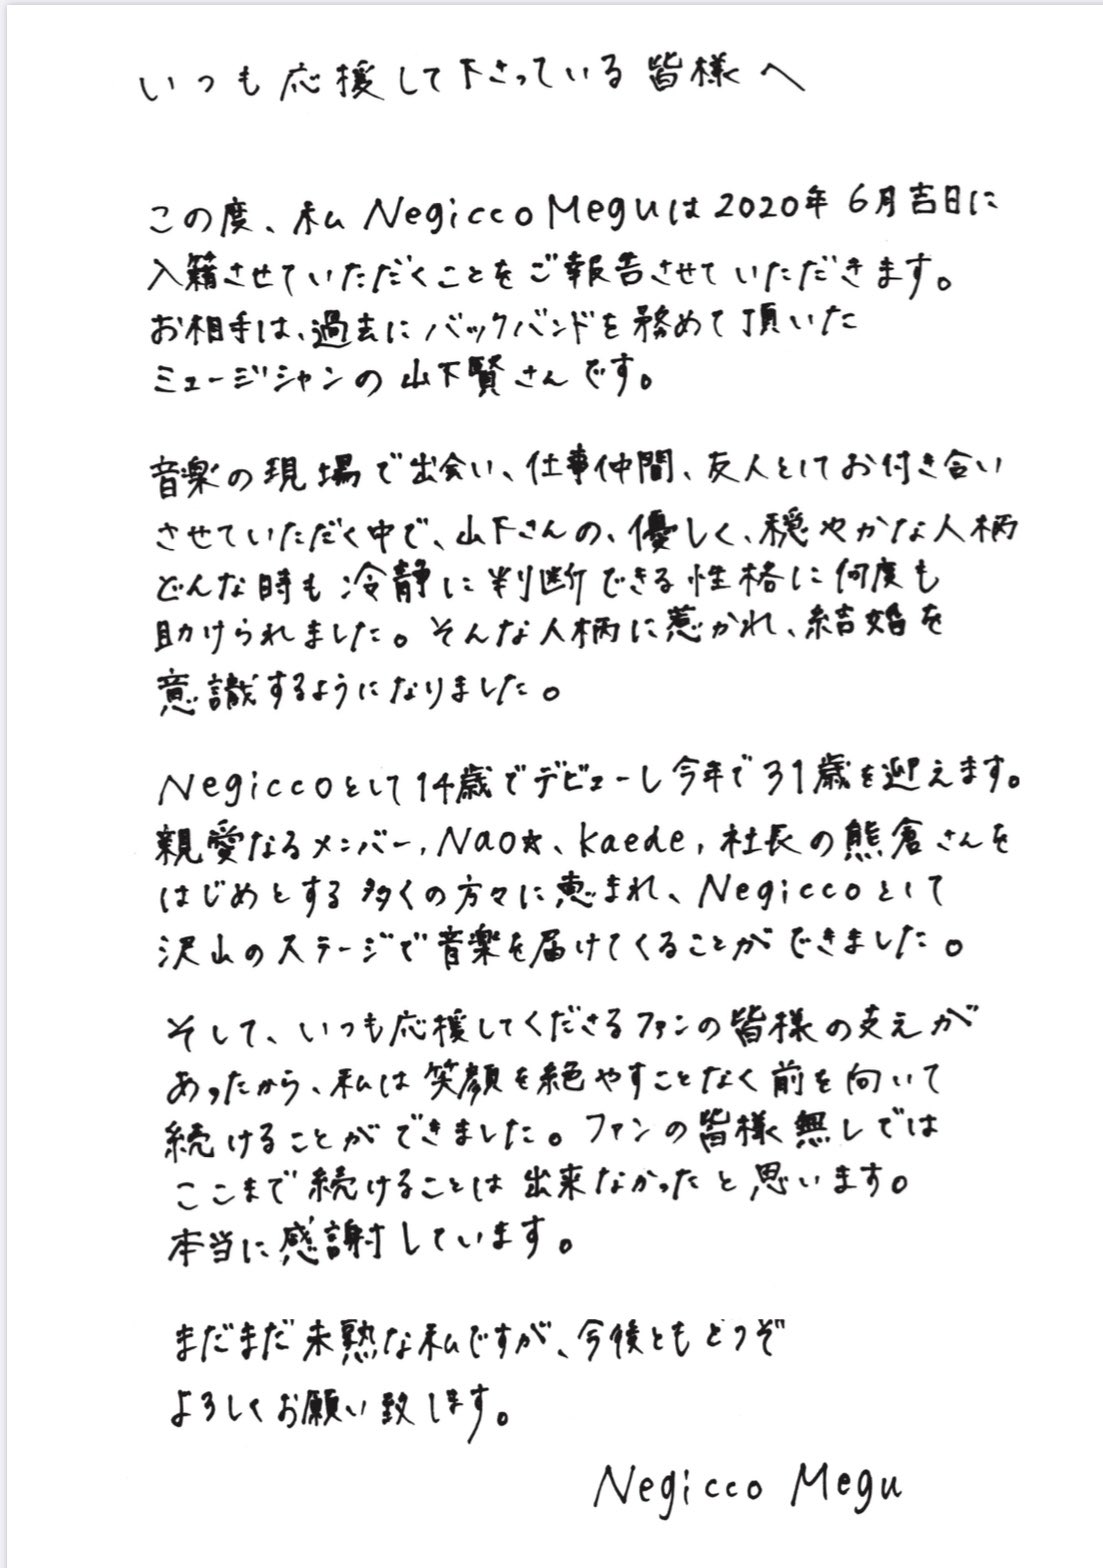 いつも応援して下さっている皆様へ
この度、私 Negicco Meguは2020年6月吉日に
入籍させていただくことをご報告させていただきます。
お相手は、過去にバックバンドを務めて頂いた
ミュージシャンの山下賢さんです。
音楽の現場で出会い、仕事仲間、友人としてお付き合い
させていただく中で、山下さんの、優しく、穏やかな人柄
どんな時も冷静に判断できる性格に何度も
助けられました。そんな人柄に惹かれ、結婚を
意識するようになりました。
Negiccoとして14歳でデビューし今年で31歳を迎えます。
親愛なるメンバー、Nao☆、Kaede、社長の熊倉さんを
はじめとする多くの方々に恵まれ、Negiccoとして
沢山のステージで音楽を届けてくることができました。
そして、いつも応援してくださるファンの皆様の支えが
あったから、私は笑顔を絶やすことなく前を向いて
続けることができました。ファンの皆様無しでは
ここまで続けることは出来なかったと思います。
本当に感謝しています。
まだまだ未熟な私ですが、今後ともどうぞ
よろしくお願い致します。
Negicco Megu